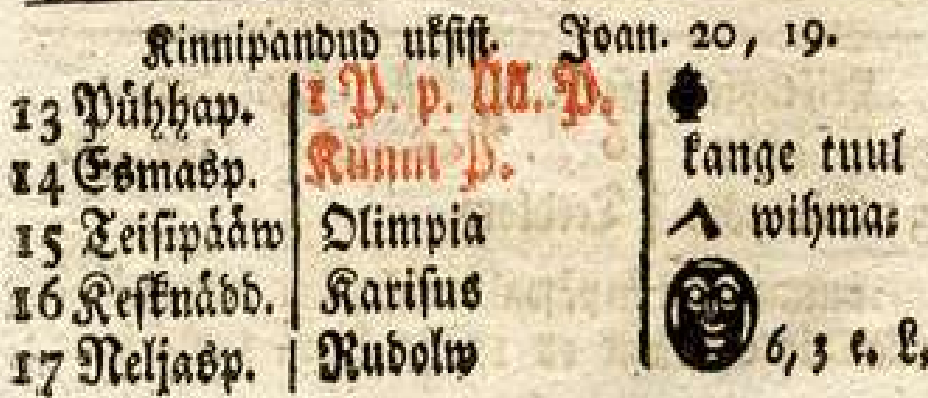 Kinnipandud uksist. Joan. 20, 19.
13 Pühhap. 1 P. p. Ül. P.
14 Esmasp. Kunni P. kange tuul
15 Teisipääw Olimpia wihma:
16 Kesknädd. Karisus
17 Neljasp. Rudolw 6, 3 e. L.